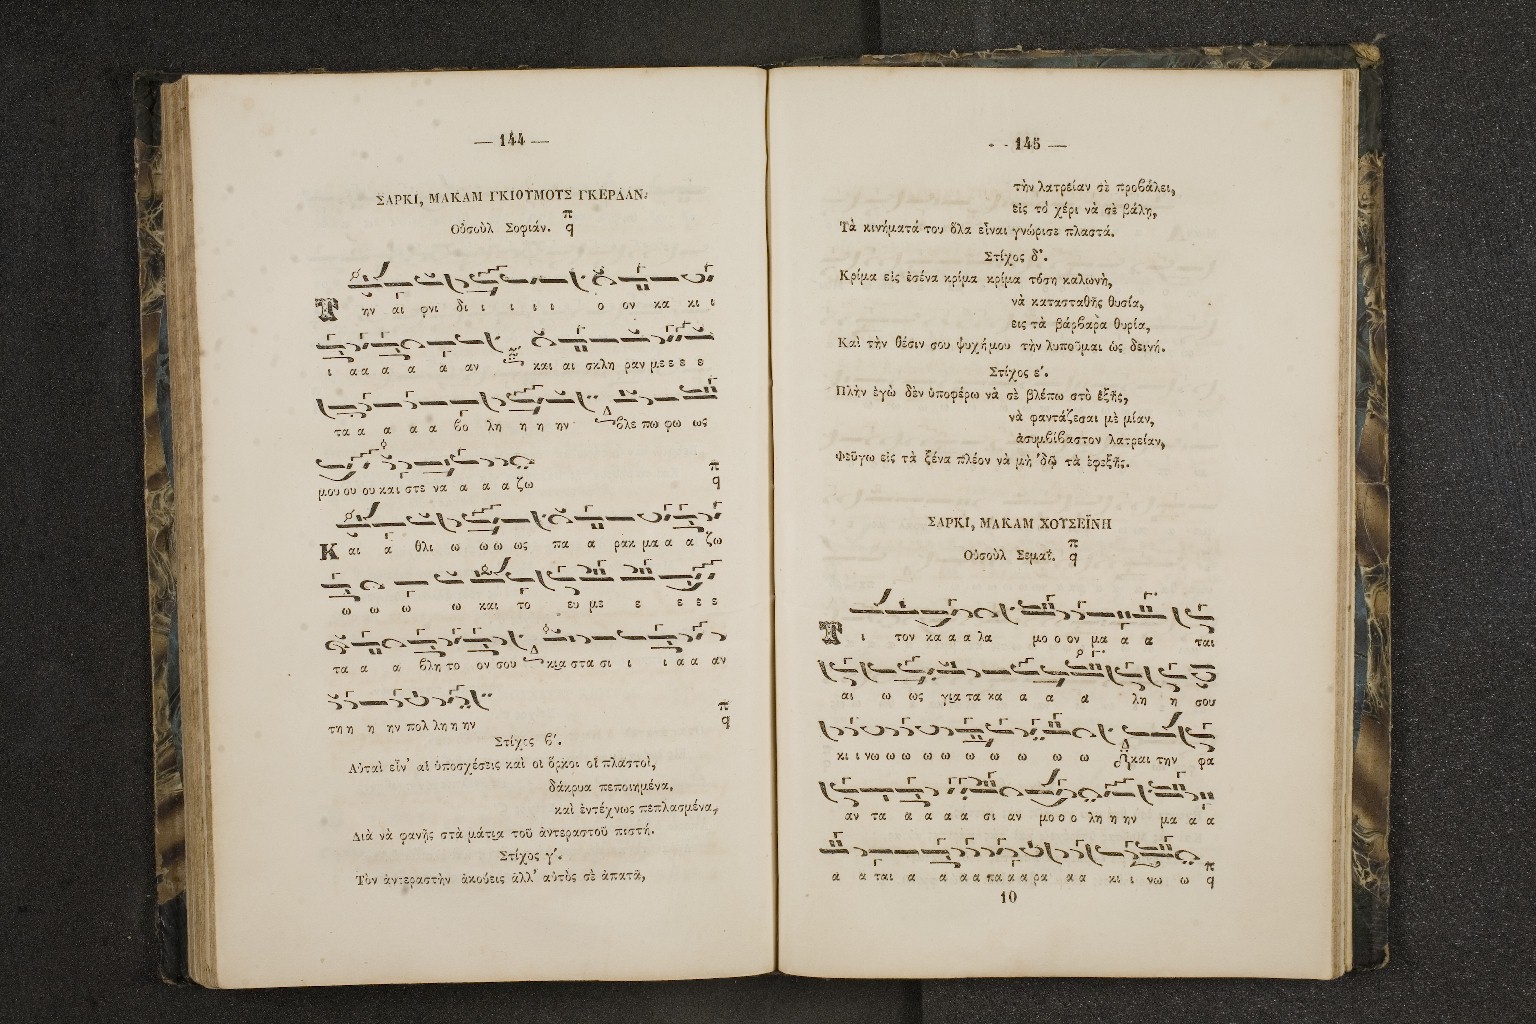 — 144 —
ΣΑΡΚΙ, ΜΑΚΑΜ ΓΚΙΟΥΜΟΥΣ ΓΚΕΡΔΑΝ.
Οὐσοὺλ Σοφιάν. π
q
Την αι φνι δι ι ι ι ι ο ον κα κι ι
ι αα α α α α αν και αι σκλη ραν με ε ε ε
τα α α α α βο λη η η ην βλε πω φω ως
μου ου ου και στε να α α α ζω
Και α θλι ω ω ω ως πα α ρακ μα α α ζω
ω ω ω ω και το ευ με ε ε ε ε
τα α α βλη το ον σου κια στα σι ι ι α α αν
τη η η ην πολ λη η ην
Στίχος β΄.
Αὐταὶ εἶν' αἱ ὑποσχέσεις καὶ οἱ ὅρκοι οἱ πλαστοὶ,
δάκρυα πεποιημένα,
καὶ ἐντέχνως πεπλασμένα,
Διὰ νὰ φανῇς στὰ μάτια τοῦ ἀντεραστοῦ πιστή.
Στίχος γ΄.
Τὸν ἀντεραστὴν ἀκούεις ἀλλ' αὐτὸς σὲ ἀπατᾷ,
- - 145 —
τὴν λατρείαν σὲ προβάλει,
εἰς τὸ χέρι νὰ σὲ βάλῃ,
Τὰ κινήματά του ὅλα εἶναι γνώρισε πλαστά.
Στίχος δ΄.
Κρίμα εἰς ἐσένα κρίμα κρίμα τόση καλωνὴ,
νὰ κατασταθῇς θυσία,
εις τὰ βάρβαρα θυρία,
Καὶ τὴν θέσιν σου ψυχήμου τὴν λυποῦμαι ὡς δεινή.
Στίχος ε΄.
Πλὴν ἐγὼ δὲν ὑποφέρω νὰ σὲ βλέπω στὸ ἑξῆς,
νὰ φαντάζεσαι μὲ μίαν,
ἀσυμβίβαστον λατρείαν,
Φεῦγω εἰς τὰ ξένα πλέον νὰ μὴ 'δῶ τὰ ἐφεξῆς.
ΣΑΡΚΙ, ΜΑΚΑΜ ΧΟΥΣΕΪΝΗ
Οὐσοὺλ Σεμαΐ. π
q
Τι τον κα α α λα μο ο ον μα α α ται
αι ω ως για τα κα α α α λη η σου
κι ι νω ω ω ω ω ω ω ω ω και την φα
αν τα α α α α σι αν μο ο ο λη η ην μα α α
α α ται α α α α πα α α ρα α α κι ι νω ω q
10